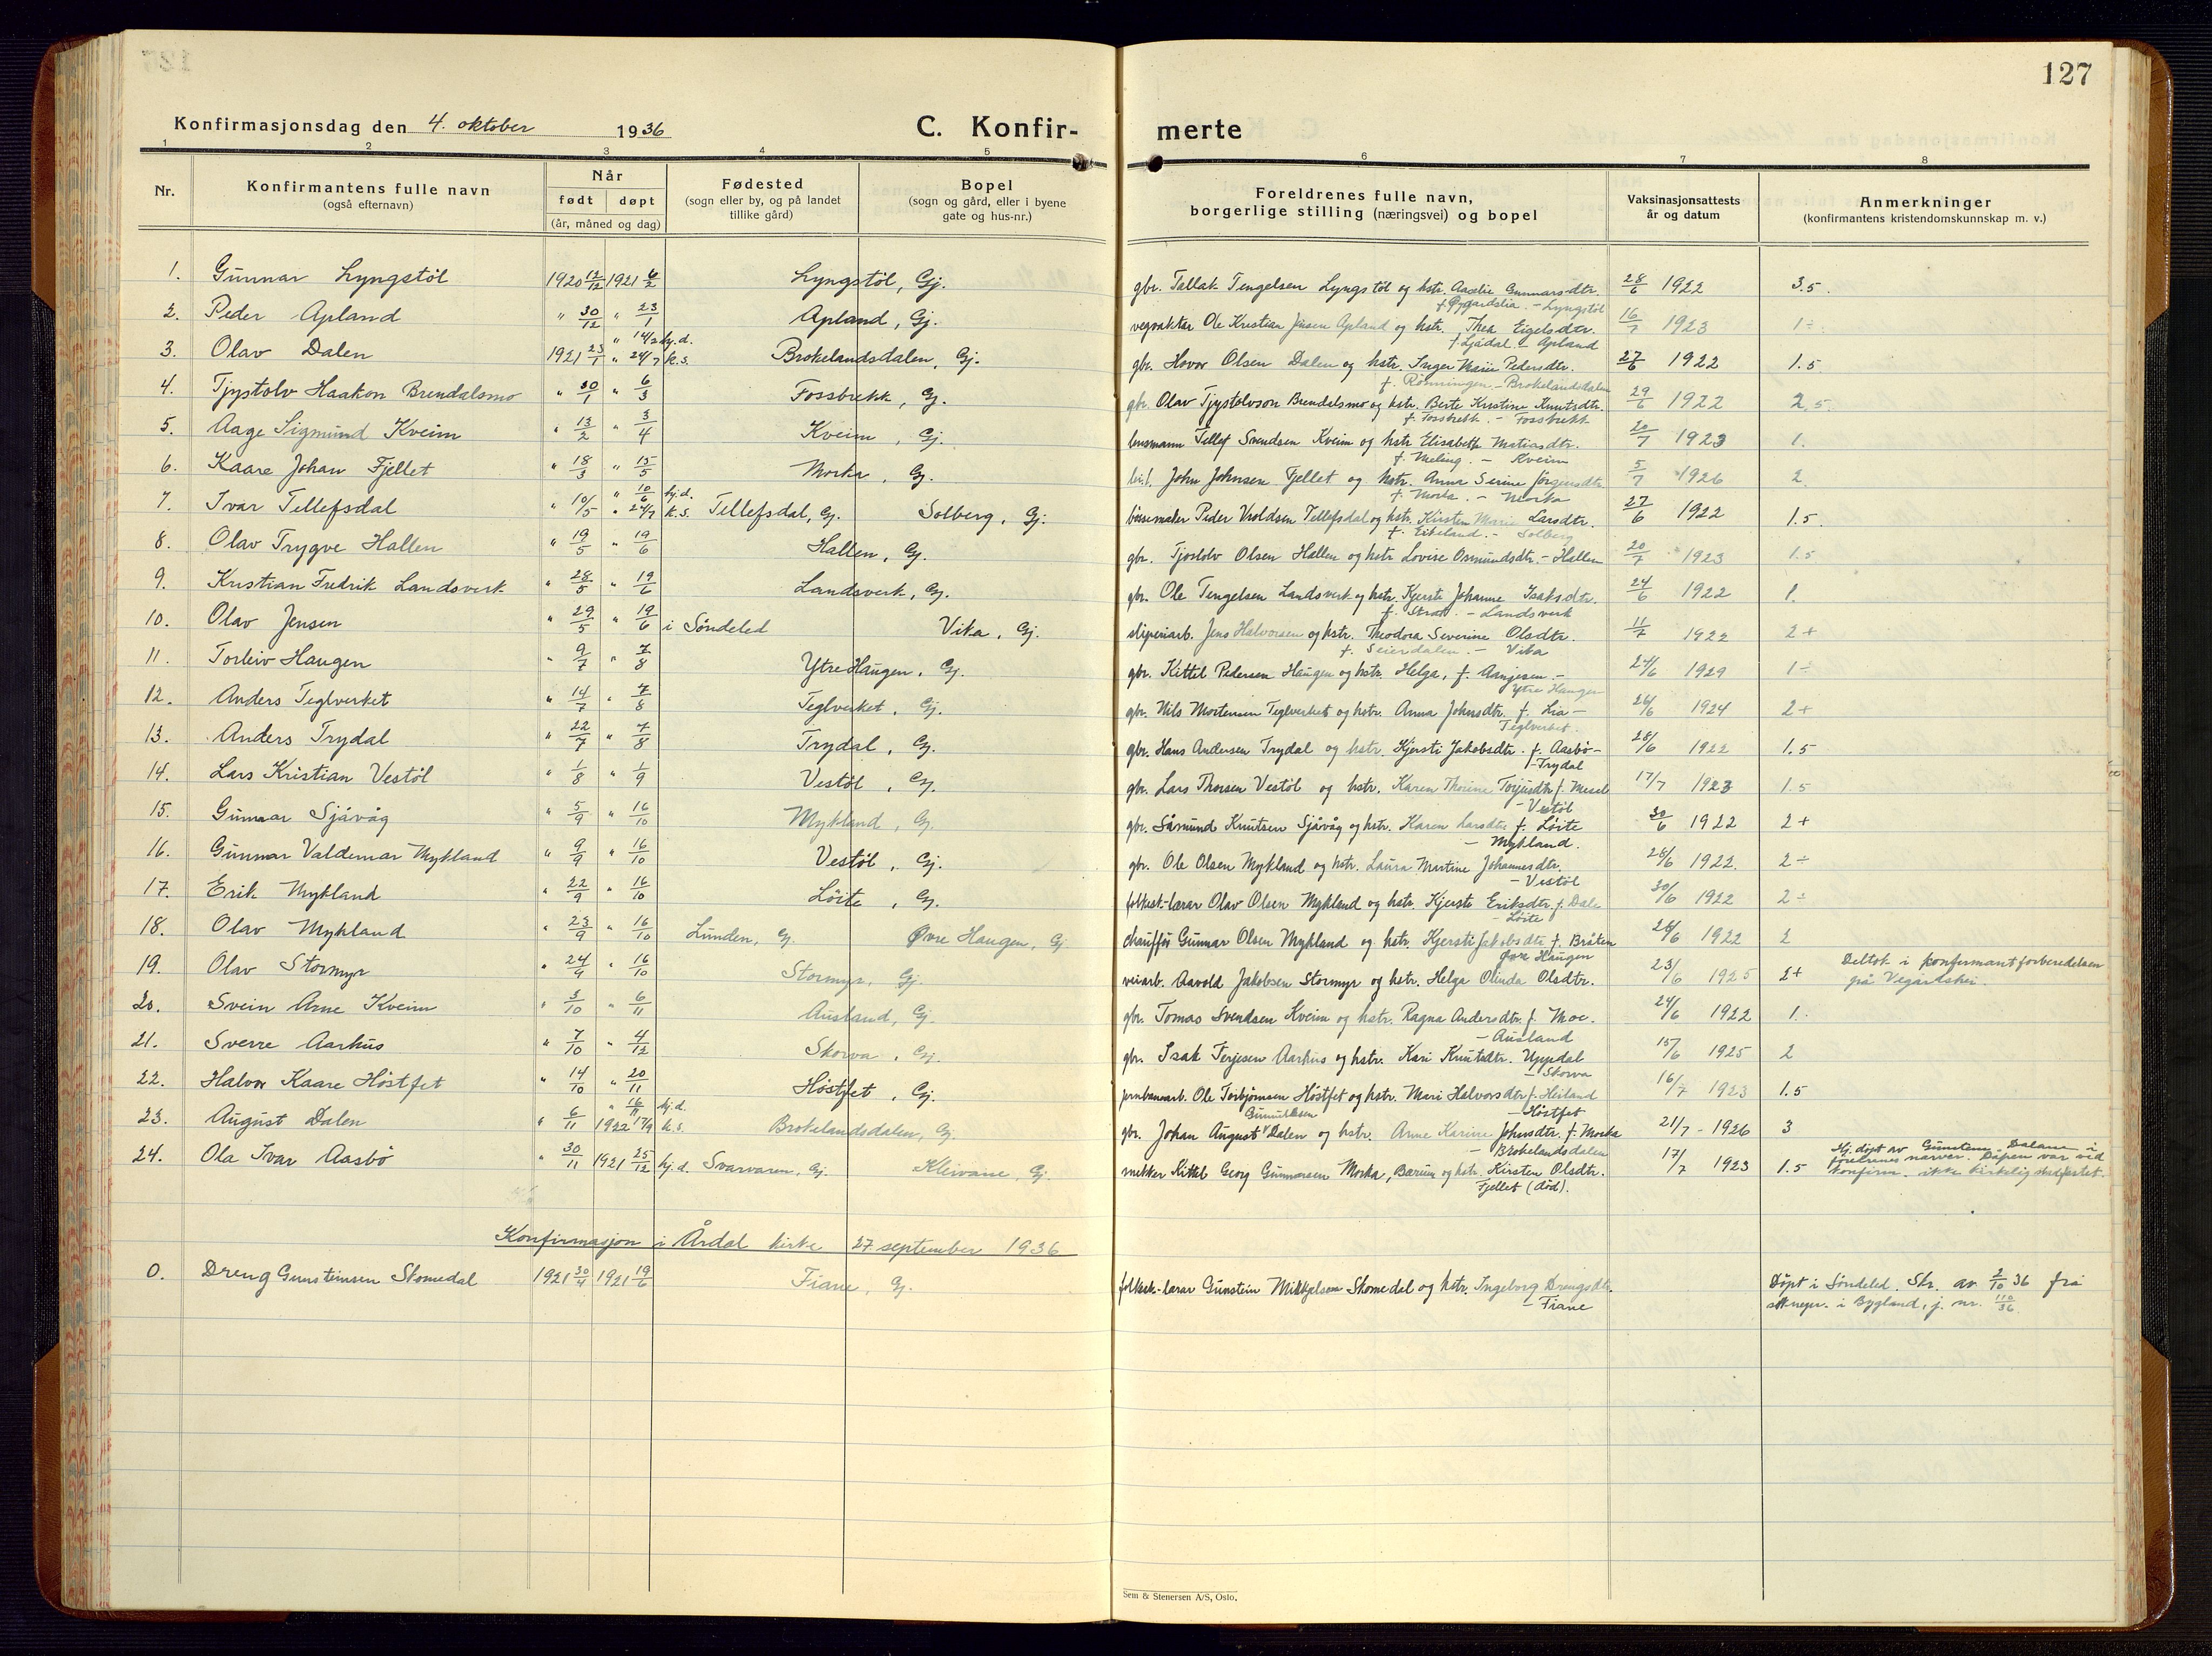 127
Konfirmasjonsdag den 4. oktober 1936
C. Konfir-merte
1 2 3 4 5 6 7 8
Nr.
Konfirmantens fulle navn
(også efternavn)
Når
født døpt
(år, måned og dag)
Fødested
(sogn eller by, og på landet
tillike gård)
Bopel
(sogn og gård, eller i byene
gate og hus-nr.)
Foreldrenes fulle navn,
borgerlige stilling (næringsvei) og bopel
Vaksinasjonsattests
år og datum
Anmerkninger
(konfirmantens kristendomskunnskap m. v.)
1. Gunnar Lyngstöl 1920 12/12 1921 6/2 Lyngstöl, Gj. gbr. Tallak Tengelsen Lyngstöl og hstr. Aaselie Gunnarsdtr. 28/6 1922 3.5.
f. Rygardslia - Lyngstöl
2. Peder Apland " 30/12 " 23/1 Apland, Gj. vegvaktar Ole Kristian Jensen Apland og hstr. Thea Eigelsdtr. 16/7 1923 1÷
f. Ljådal - Apland
" 14/2 hj.d.
3. Olav Dalen 1921 23/1 " 24/7 k.s. Brokelandsdalen, Gj. gbr. Hovor Olsen Dalen og hstr. Inger Marie Pedersdtr. 27/6 1922 1.5
f. Rönningen - Brokelandsdalen
4. Tjystolv Haakon Brendalsmo " 30/1 " 6/3 Fossbrekk, Gj. gbr. Olav Tjystolvson Brendalsmo og hstr. Berte Kristine Knutsdtr. 29/6 1922 2,5
f. Fossbrekk - Fossbrekk
5. Aage Sigmund Kveim " 13/2 " 3/4 Kveim, Gj. lensmann Tellef Svendsen Kveim og hstr Elisabeth Matiasdtr. 20/7 1923 1.
f. Meling. - Kveim
6. Kaare Johan Fjellet " 18/3 " 15/5 Morka, Gj. John Johnsen Fjellet og hstr. Anna Serine Jörgensdtr 5/7 1926 2
f. Morka. - Morka
" 10/6 hj.d.
7. Ivar Tellefsdal " 10/5 " 24/7 k.s. Tellefsdal, Gj. Solberg, Gj. bössemaker Peder Vroldsen Tellefsdal og hstr. Kirsten Marie Larsdtr. 27/6 1922 1.5
f. Eikeland. - Solberg
8. Olav Trygve Hallen " 19/5 " 19/6 Hallen, Gj. gbr. Tjostolv Olsen Hallen og hstr Lovise Osmundsdtr. - Hallen 20/7 1923 1.5
9. Kristian Fredrik Landsverk " 28/5 " 19/6 Landsverk, Gj. gbr. Ole Tengelsen Landsverk og hstr. Kjersti Johanne Isaksdtr. 24/6 1922 1.
- Landsverk
10. Olav Jensen " 29/5 " 19/6 i Söndeled Vika, Gj. sliperiarb. Jens Halvorsen og hstr. Theodora Severine Olsdtr. 11/7 1922 2+
f. Seierdalen. - Vika
11. Torleiv Haugen " 9/7 " 7/8 Ytre Haugen, Gj. gbr. Kittel Pedersen Haugen og hstr. Helga, f. Aanjesen. - 24/6 1929 1÷
Ytre Haugen
12. Anders Teglverket " 14/7 " 7/8 Teglverket, Gj. gbr. Nils Mortensen Teglverket og hstr. Anna Johnsdtr. f. Lia - 26/6 1924 2+
Teglverket.
13. Anders Trydal " 22/7 " 7/8 Trydal, Gj. gbr. Hans Andersen Trydal og hstr. Kjersti Jakobsdtr. f. Aasbö- 28/6 1922 1.5
-Trydal
14. Lars Kristian Vestöl " 1/8 " 1/9 Vestöl, Gj. gbr. Lars Thorsen Vestöl og hstr. Karen Thorine Torjusdtr f. Mesel 17/7 1923 1.5
- Vestöl
15. Gunnar Sjåvåg " 5/9 " 16/10 Mykland, Gj. gbr. Såmund Knutsen Sjåvåg og hstr. Karen Larsdtr f. Löite 30/6 1922 2+
- Mykland.
16. Gunnar Valdemar Mykland " 9/9 " 16/10 Vestöl, Gj. gbr. Ole Olsen Mykland og hstr. Laura Martine Johannesdtr. 28/6 1922. 2÷
- Vestöl
17. Erik Mykland " 22/9 " 16/10 Löite, Gj. folkesk.-lærar Olav Olsen Mykland og hstr. Kjersti Eriksdtr. f. Dale 30/6 1922 2÷
- Löite
18. Olav Mykland " 23/9 " 16/10 Lunden, Gj. Øvre Haugen, Gj chauffør Gunnar Olsen Mykland og hstr. Kjersti Jakobsdtr f. Bråten 28/6 1922 2
Øvre Haugen
19. Olav Stormyr " 24/9 " 16/10 Stormyr, Gj. veiarb. Aavold Jakobsen Stormyr og hstr. Helga Olinda Olsdtr. 23/6 1925 2+ Deltok i konfirmantforberedelsen
på Vegårdshei.
20. Svein Arne Kveim " 3/10 " 6/11 Ausland, Gj. gbr. Tomas Svendsen Kveim og hstr. Ragna Andersdtr. f. Moe. 24/6 1922 1.
- Ausland
21. Sverre Aarhus " 7/10 " 4/12 Skorva, Gj. gbr. Isak Terjesen Aarhus og hstr. Kari Knutsdtr. Uppdal 15/6 1925 2
- Skorva
22. Halvor Kaare Höstfet " 14/10 " 20/11 Höstfet, Gj. jernbanearb. Ole Torbjörnsen Höstfet og hstr. Mari Halvorsdtr f. Heiland 16/7 1923 1.5
- Höstfet
" 16/11 hj.d.
23. August Dalen " 6/11 1922 17/9 k.s. Brokelandsdalen, Gj. gbr. Johan August Gunnulvsen Dalen og hstr. Anne Karine Johnsdtr. f. Morka 21/7 - 1926 3
- Brokelandsdalen
24. Ola Ivar Aasbö " 30/11 1921 25/12 hj.d. Svarvaren, Gj. Kleivane, Gj. snekker Kittel Georg Gunnarsen Morka, Bærum og hstr. Kirsten Olsdtr. 17/7 1923 1.5 Hj. døpt av Gunstein Dalane i
Fjellet (död). foreldrenes nærvær. Dåpen var ved
konfirm. ikke kirkelig stadfestet.
Konfirmasjon i Årdal kirke 27 september 1936
0. Dreng Gunsteinsen Skomedal 1921 30/4 1921 19/6 Fiane, Gj. folkesk.-lærar Gunstein Mikkjelsen Skomedal og hstr. Ingeborg Drengsdtr. Döpt i Söndeled. Skr. av 2/10 36 frå
- Fiane soknepr. i Bygland, j. nr. 110/36.
Sem & Stenersen A/S, Oslo.